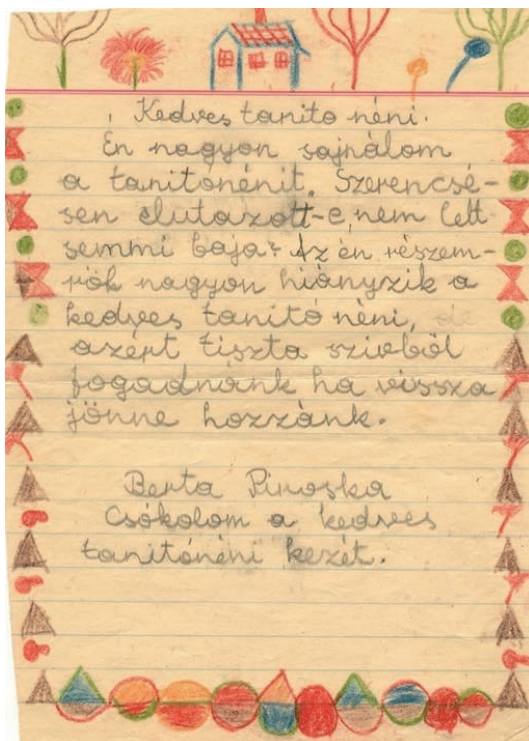 Kedves tanito néni.
Én nagyon sajnálom
a tanitónénit. Szerencsé-
sen elutazott-e, nem lett
semmi baja? Az én részem-
rök nagyon hiányzik a
kedves tanitó néni, de
azért tiszta szivből
fogadnánk ha vissza
jönne hozzánk.
Berta Piroska
Csókolom a kedves
tanitónéni kezét.